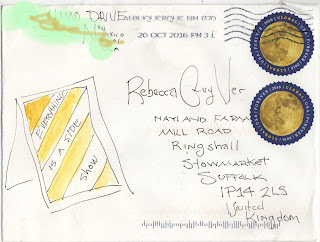 DRIVE
ALBUQUERQUE NM 870
20 OCT 2016 PM 3 L
GLOBAL FOREVER
GLOBAL FOREVER
Rebecca Guy Ver
NAYLAND FARM
MILL ROAD
Ringshall
Stowmarket
Suffolk
IP14 2LS
United
Kingdom
EVERYTHING
IS A SIDE
Show